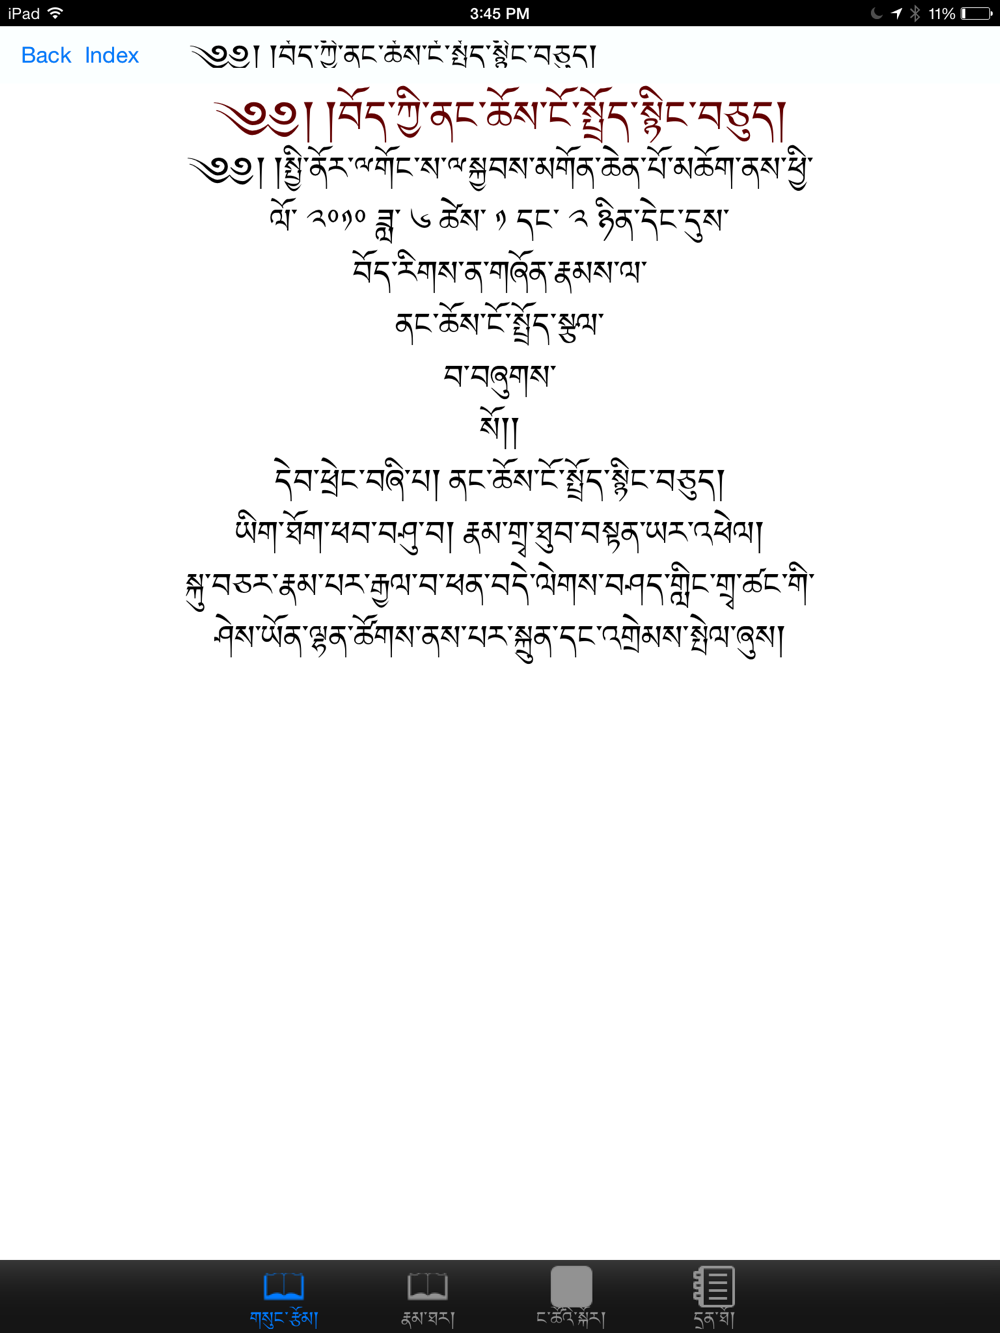 iPad 3:45 PM 11%
Back Index ༄༅། །བོད་ཀྱི་ནང་ཆོས་ངོ་སྤྲོད་སྙིང་བཅུད།
༄༅། །བོད་ཀྱི་ནང་ཆོས་ངོ་སྤྲོད་སྙིང་བཅུད།
༄༅། །སྤྱི་ནོར་༸གོང་ས་༸སྐྱབས་མགོན་ཆེན་པོ་མཆོག་ནས་ཕྱི་
ལོ་ ༢༠༡༠ ཟླ་ ༦ ཚེས་ ༡ དང་ ༢ ཉིན་དེང་དུས་
བོད་རིགས་ན་གཞོན་རྣམས་ལ་
ནང་ཆོས་ངོ་སྤྲོད་སྩལ་
བ་བཞུགས་
སོ།།
དེབ་ཕྲེང་བཞི་པ། ནང་ཆོས་ངོ་སྤྲོད་སྙིང་བཅུད།
ཡིག་ཐོག་ཕབ་བཤུ་བ། རྣམ་གྲྭ་ཐུབ་བསྟན་ཡར་འཕེལ།
སྐུ་བཅར་རྣམ་པར་རྒྱལ་བ་ཕན་བདེ་ལེགས་བཤད་གླིང་གྲྭ་ཚང་གི་
ཤེས་ཡོན་ལྷན་ཚོགས་ནས་པར་སྐྲུན་དང་འགྲེམས་སྤེལ་ཞུས།
གསུང་རྩོམ། རྣམ་ཐར། ང་ཚོའི་སྐོར། དྲན་ཐོ།